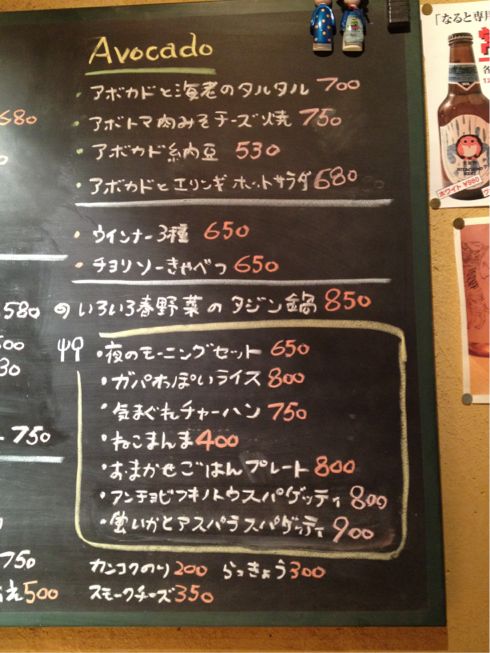 Avocado
・アボカドと海老のタルタル 700
680
・アボトマ肉みそチーズ焼 750
・アボカド納豆 530
・アボカドとエリンギホットサラダ 680
・ウインナー3種 650
・チョリソーきゃべつ 650
580
のいろいろ春野菜のタジン鍋 850
・夜のモーニングセット 650
・ガパオっぽいライス 800
・気まぐれチャーハン 750
・ねこまんま 400
750
・おまかせごはんプレート 800
・アンチョビフキノトウスパゲッティ 800
・蛍いかとアスパラスパゲッティ 900
750
カンコクのり 200 らっきょう 300
500
スモークチーズ 350
「なると専用
ホワイト ¥980